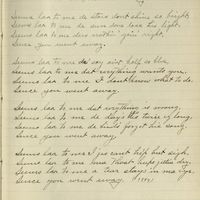 Seems lak to me de stars don't shine so bright,
Seems lak to me de sun done loss his light,
Seems lak to me ders nothin' goin' right,
Since you went away.
Seems lak to me de sky aint half so blue,
Seems lak to me dat ev'rything wants you,
Seems lak to me I don't know what to do,
Since you went away.
Seems lak to me dat ev'ything is wrong,
Seems lak to me de days jes twice es long,
Seems lak to me de birds forgot his song,
Since you went away.
Seems lak to me I jes can't help but sigh,
Seems lak to me ma throat keeps gittin dry,
Seems lak to me a tear stays in ma eye,
Since you went away.